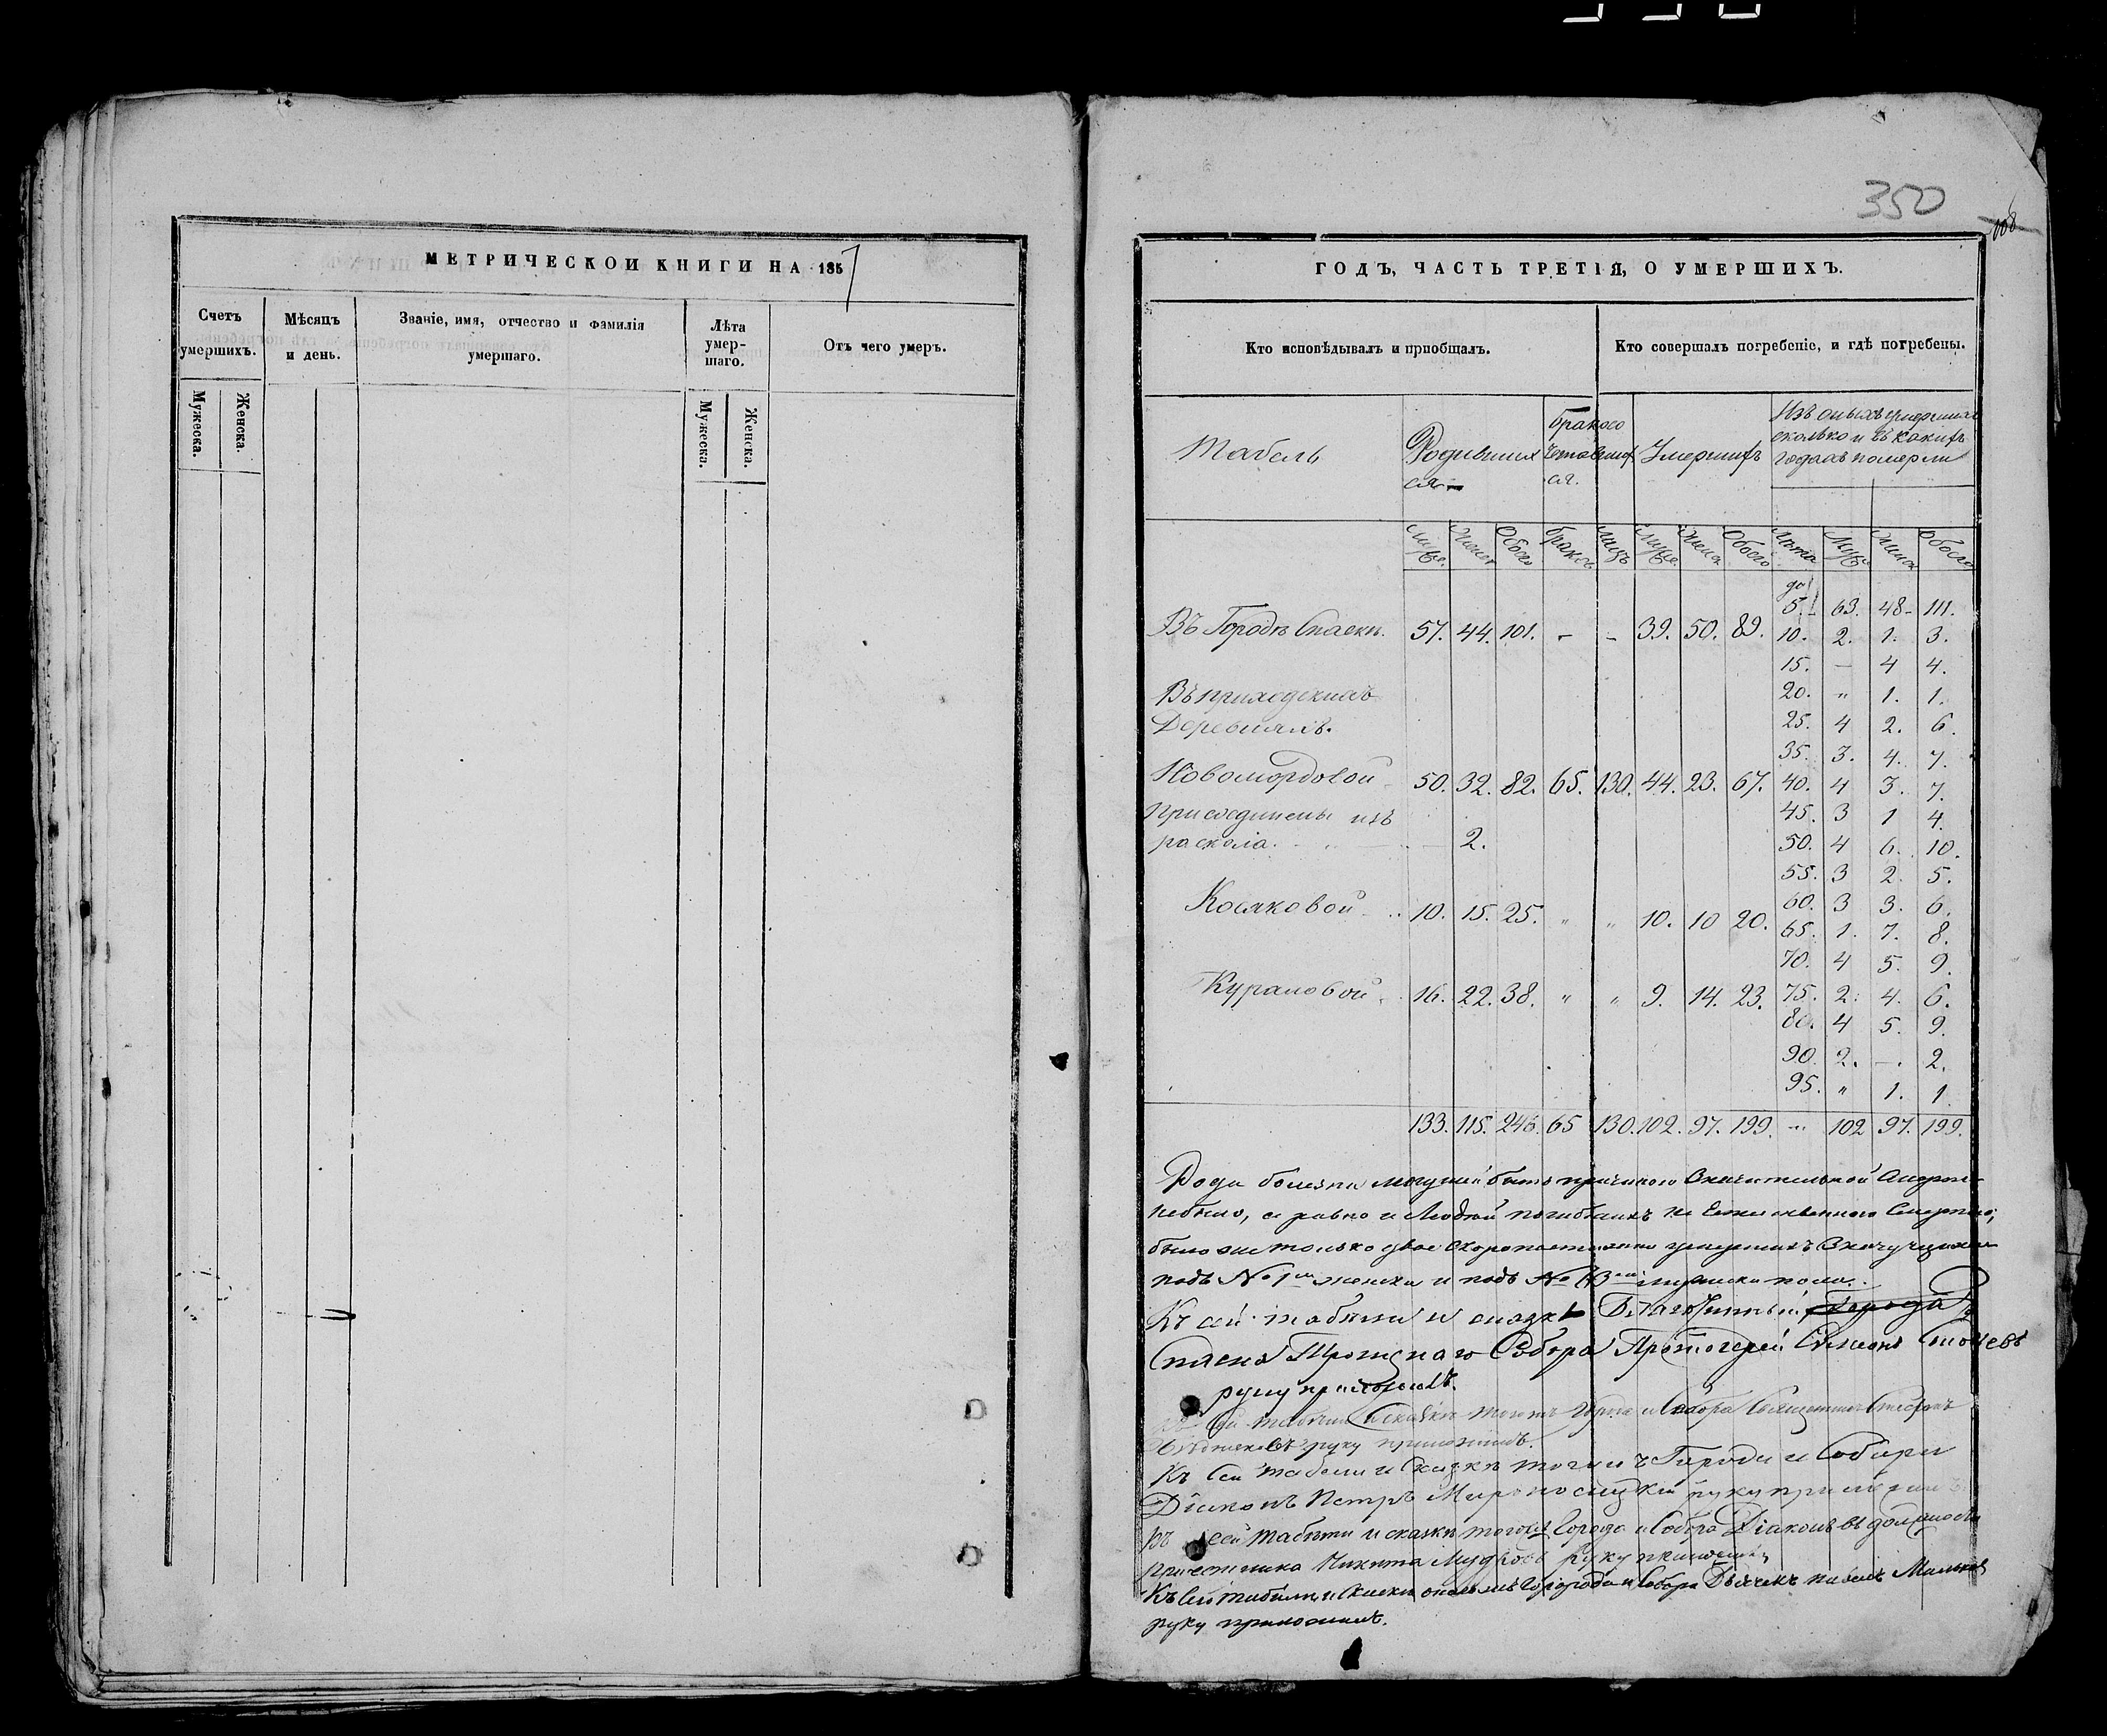 350
108
МЕТРИЧЕСКОЙ КНИГИ НА 1857
Счетъ умершихъ.
Мѣсяцъ и день.
Званіе, имя, отчество и фамилія умершаго.
Лѣта умер-шаго.
Отъ чего умеръ.
Мужеска.
Женска.
Мужеска.
Женска.
ГОДЪ, ЧАСТЬ ТРЕТІЯ, О УМЕРШИХЪ.
Кто исповѣдывалъ и пріобщалъ.
Кто совершалъ погребеніе, и гдѣ погребены.
Табель
Родившихся
Бракосочетавшихся.
Умершихъ
Изъ оныхъ умершихъ
сколько и въ какихъ
годахъ померли
Муже. Женск Обоего Браковъ Лицъ Муже. Женск Обоего Лѣта Муж Женск Обоего
до 5. 63. 48 111.
Въ Городѣ Спаскѣ. 57. 44. 101. - - 39. 50. 89. 10. 2. 1. 3.
15. — 4 4.
Въ приходскихъ 20. " 1. 1.
Деревняхъ. 25. 4 2. 6.
35. 3. 4. 7.
Новомордовой 50. 32. 82. 65. 130. 44. 23. 67. 40. 4 3. 7.
Присоединены изъ 45. 3 1 4.
раскола. — 2. 50. 4 6. 10.
55. 3 2. 5.
60. 3 3. 6.
Косяковой 10. 15. 25. " " 10. 10 20. 65. 1. 7. 8.
70. 4 5. 9.
Кураловой 16. 22. 38. " " 9. 14. 23. 75. 2. 4. 6.
80. 4 5. 9.
90. 2. —. 2.
95. " 1. 1.
133. 115. 248. 65 130. 102. 97. 199. — 102 97. 199.
Рода болезни могущей быть причиною значительной смерти
небыло, а равно и Людей погибшихъ не Естественною Смертію;
было же только двое скоропостижно умершихъ
подъ № 1 женска и подъ № мужеска пола.
Къ сей табели и сказкѣ Благочинный, Города
Спаска Троицкаго Собора Протоіерей Симеонъ
руку приложилъ.
Къ сей табели и сказкѣ тогожъ города и Собора Священникъ
руку приложилъ.
Къ Сей табели и Сказкѣ тогожъ Города и Собора
Діаконъ Петръ Мироносицкій руку приложилъ
Къ сей табели и сказкѣ тогожъ Города и Собора Діаконъ въ должности
причетника Никита Мудровъ Руку приложилъ
Къ Сей табели и Сказкѣ Города и Собора Дьячекъ Павелъ
руку приложилъ.